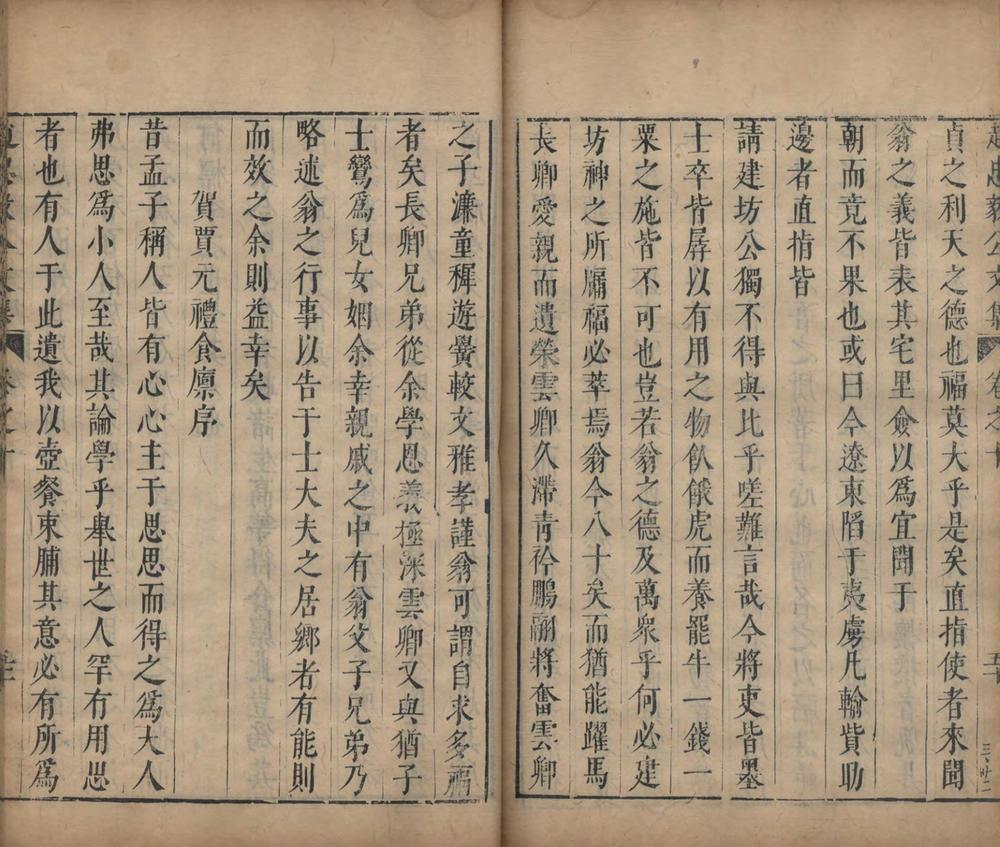 趙忠毅公文集 卷之十
貞之利天之德也福莫大乎是矣直指使者來聞
翁之義皆表其宅里僉以爲宜聞于
朝而竟不果也或曰今遼東陷于夷虜凡輸貲助
邊者直指皆
請建坊公獨不得與比乎嗟難言哉今將吏皆墨
士卒皆孱以有用之物飤餓虎而養罷牛一錢一
粟之施皆不可也豈若翁之德及萬衆乎何必建
坊神之所牖福必萃焉翁今八十矣而猶能躍馬
長卿愛親而遺榮雲卿久滯青衿鵬翮將奮雲卿
之子濂童穉遊黌較文雅孝謹翁可謂自求多福
者矣長卿兄弟從余學恩義極深雲卿又與猶子
士鸞爲兒女姻余幸親戚之中有翁父子兄弟乃
略述翁之行事以告于士大夫之居鄉者有能則
而效之余則益幸矣
賀賈元禮食廪序
昔孟子稱人皆有心心主于思思而得之爲大人
弗思爲小人至哉其論學乎舉世之人罕有用思
者也有人于此遺我以壺餐束脯其意必有所爲